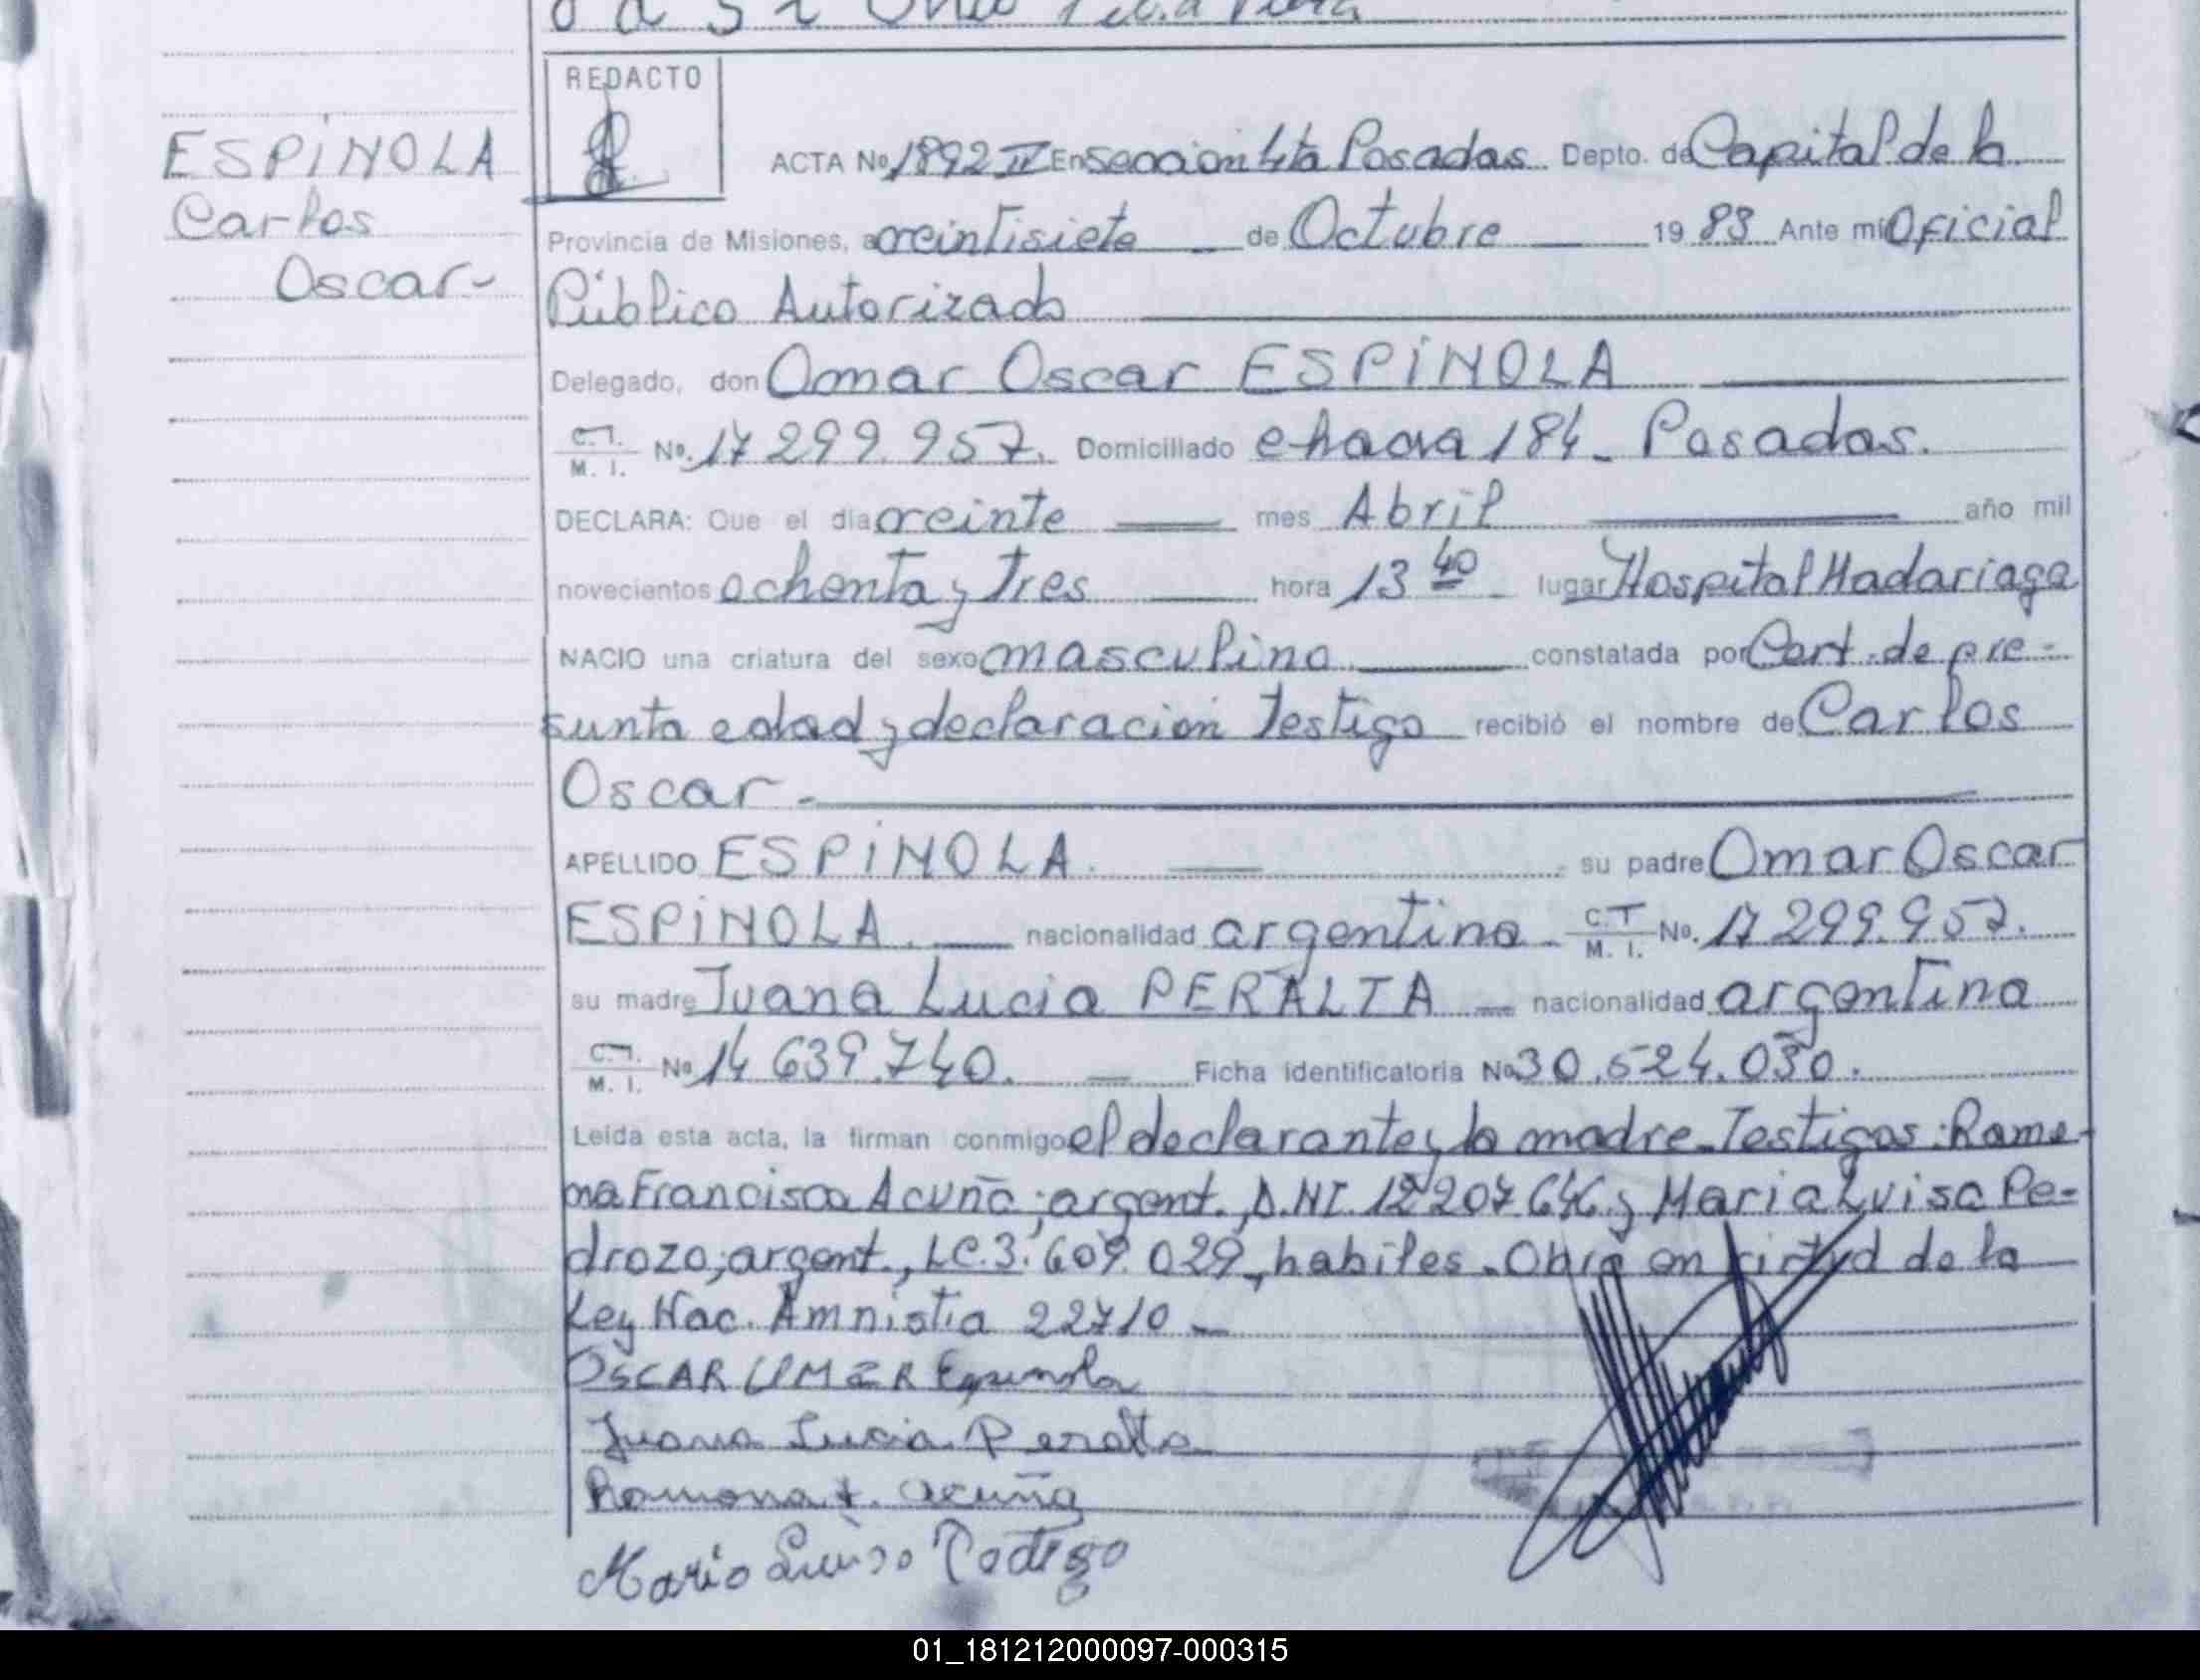 REDACTO
ESPINOLA
Carlos
Oscar-
ACTA Nº 1892 IV En Sección 4ta Posadas Depto. de Capital de la
Provincia de Misiones, a veintisiete de Octubre 1983 Ante mi Oficial
Público Autorizado
Delegado, don Omar Oscar ESPINOLA
C.I. M. I. Nº. 17 299.957. Domiciliado chacra 184 - Posadas.
DECLARA: Que el dia veinte mes Abril año mil
novecientos ochenta y tres hora 13 40 lugar Hospital Madariaga
NACIO una criatura del sexo masculino constatada por Cert. de pre-
sunta edad y declaración Testigo recibió el nombre de Carlos
Oscar -
APELLIDO ESPINOLA. su padre Omar Oscar
ESPINOLA. nacionalidad argentino C.I M. I. No. 17 299.957.
su madre Juana Lucia PERALTA nacionalidad argentina
C.I. M. I. Nº 14 639.740. Ficha identificatoria Nº 30.524.030.
Leída esta acta, la firman conmigo el declarante y la madre - Testigos: Ramo-
na Francisca Acuña; argent., D.NI. 12 207.646 y Maria Luisa Pe-
drozo; argent., LC. 3.609.029, habiles. Obra en virtud de la
Ley Nac. Amnistia 22710 -
OSCAR Espinola
Juana Lucia Peralta
Ramona F. acuña
01_181212000097-000315